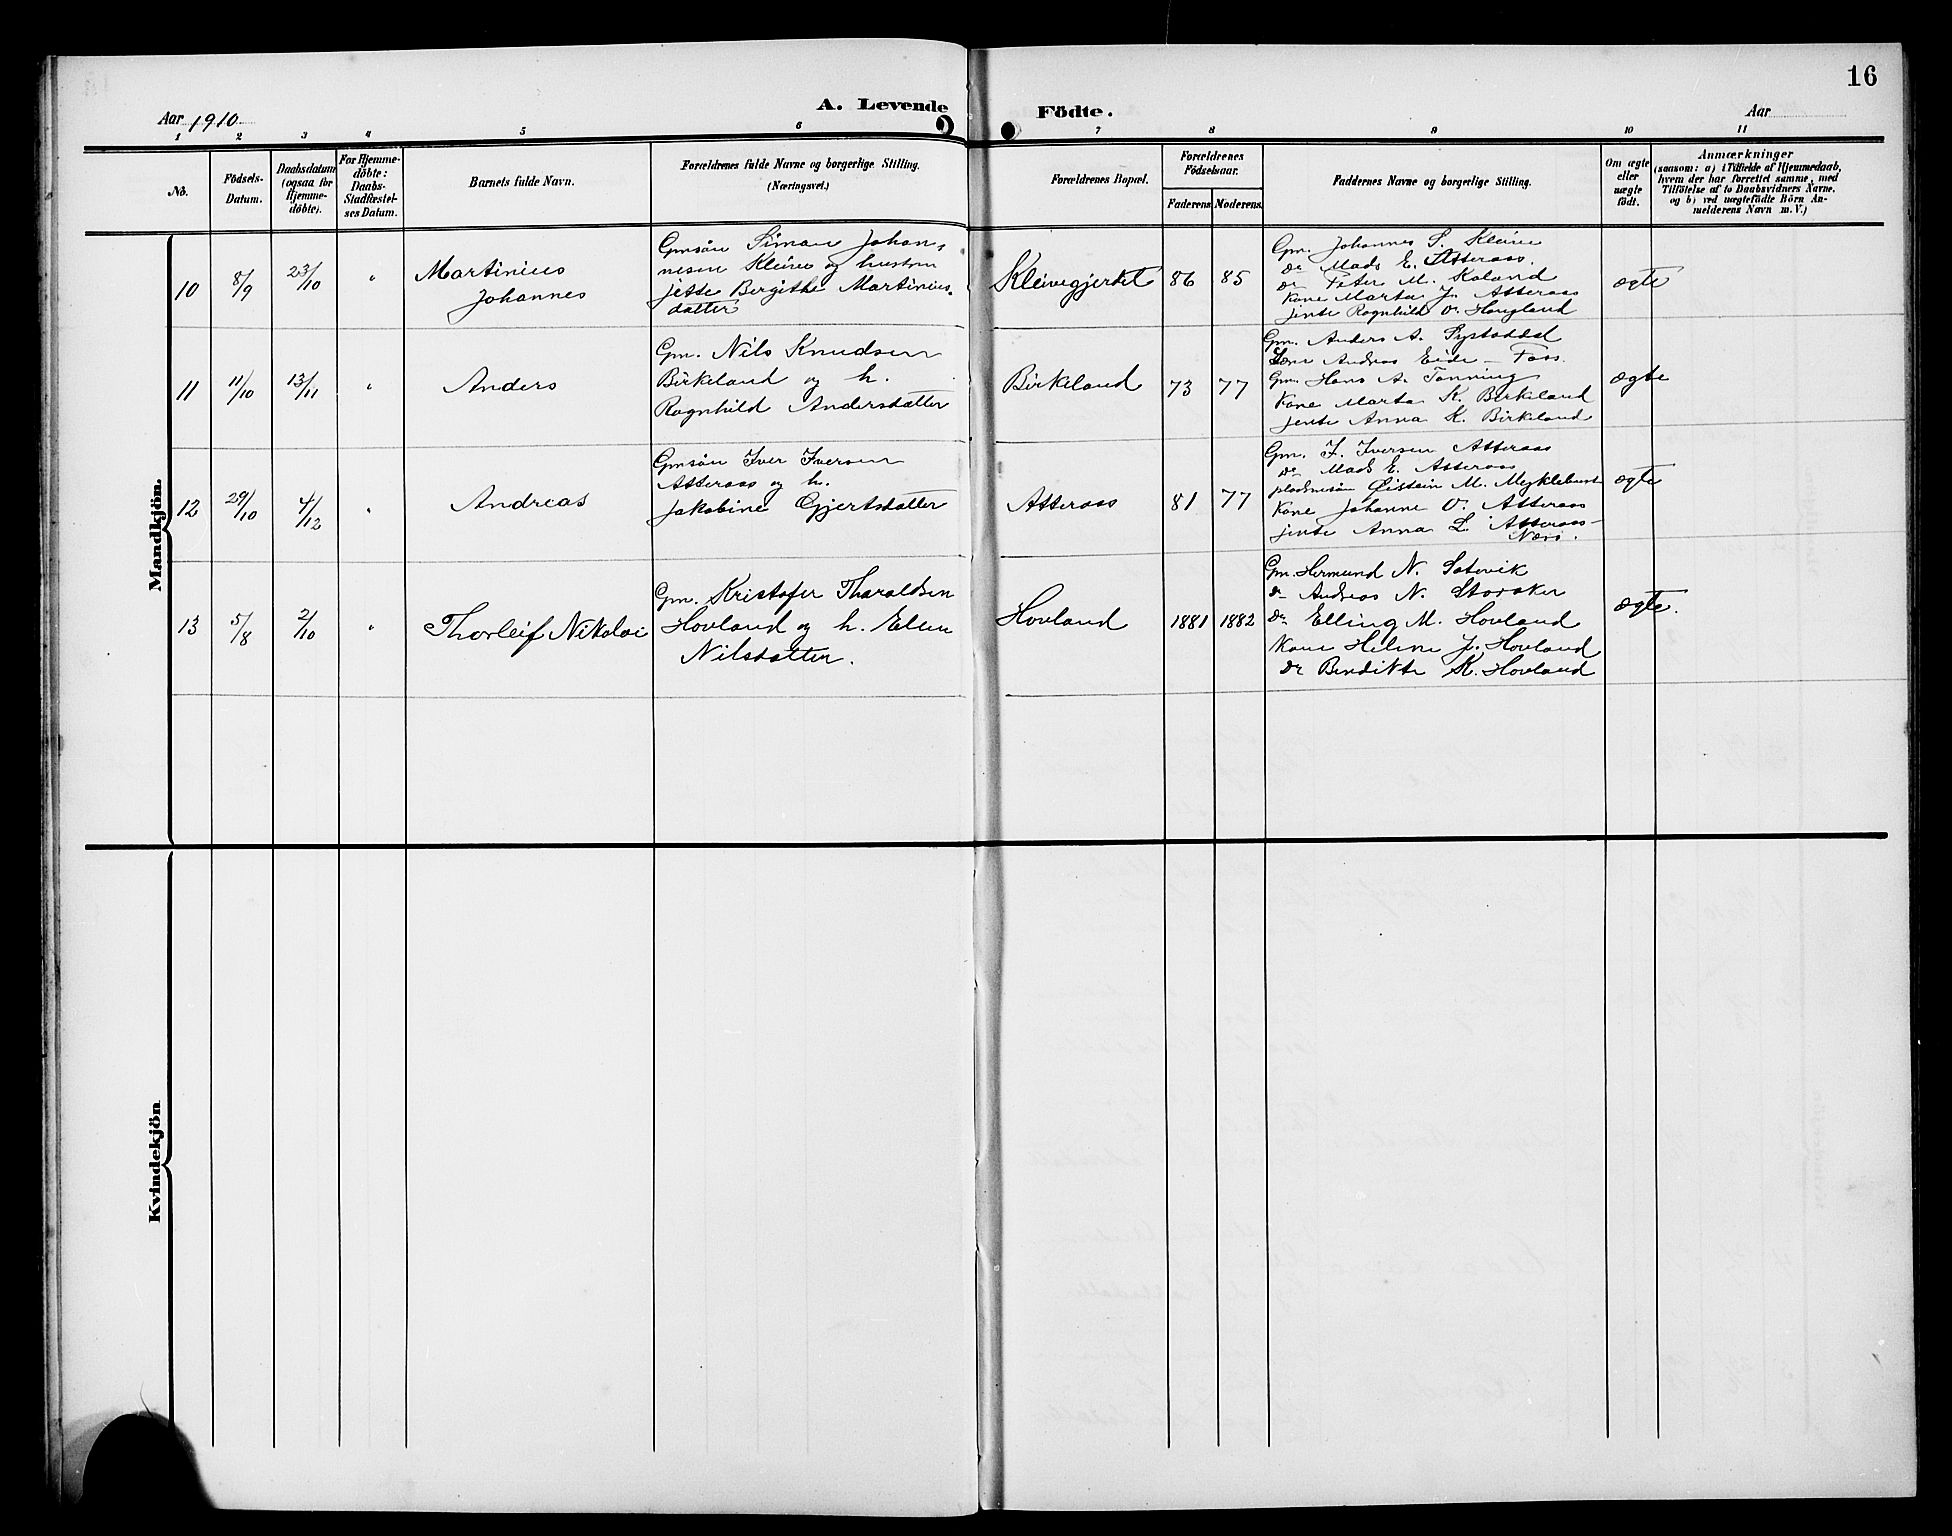 16
A. Levende Födte.
Aar 1910 Aar
1 2 3 4 5 6 7 8 9 10 11
No.
Födsels-Datum.
Daabsdatum (ogsaa for Hjemme-döbte).
For Hjemme-döbte: Daabs-Stadfæstel-ses Datum.
Barnets fulde Navn.
Forældrenes fulde Navne og borgerlige Stilling.
(Næringsvei.)
Forældrenes Bopæl.
Forældrenes Födselsaar.
Faderens Moderens
Faddernes Navne og borgerlige Stilling.
Om ægte eller uægte födt.
Anmærkninger
(saasom: a) i Tilfælde af Hjemmedaab,
hvem der har forrettet samme, med
Tilföielse af to Daabsvidners Navne,
og b) ved uægtefödte Börn An-
melderens Navn m. V.)
Mandkjön.
10 8/9 23/10 "
Martinius
Johannes
Gmsön Simon Johan-
nesen Kleive og hustru
Jette Bergithe Martinius-
datter
Kleivegjerdet 86 85
Gm. Johannes S. Kleive
Do Mads E. Atteraas.
Do Peter M. Kaland
Kone Marta J. Atteraas
jente Ragnhild O. Haugland
ægte
11 11/10 13/11 "
Anders
Gm. Nils Knudsen
Birkeland og h.
Ragnhild Andersdatter
Birkeland 73 77
Gm. Anders A. Systaddal
Andreas Eide - Foss.
Gm. Hans A. Tonning
Kone Marta K. Birkeland
jente Anna K. Birkeland
ægte
12 29/10 4/12 "
Andreas
Gmsön Iver Iversen
Atteraas og h.
Jakobine Gjertsdatter
Atteraas 81 77
Gm. I. Iversen Atteraas
Do Mads E. Atteraas
pladsmsön Øistein M. Myklebust
Kone Johanne O. Atteraas
jente Anna L. Atteraas-
Næss.
ægte
13 5/8 2/10 "
Thorleif Nikolai
Gm. Kristofer Tharaldsen
Hovland og h. Ellen
Nilsdatter.
Hovland 1881 1882
Gm. Hermund N. Solevik
Do Andreas N. Storaker
Do Elling M. Hovland
Kone Helene J. Hovland
Do Bendikte K. Hovland
ægte.
Kvindekjön